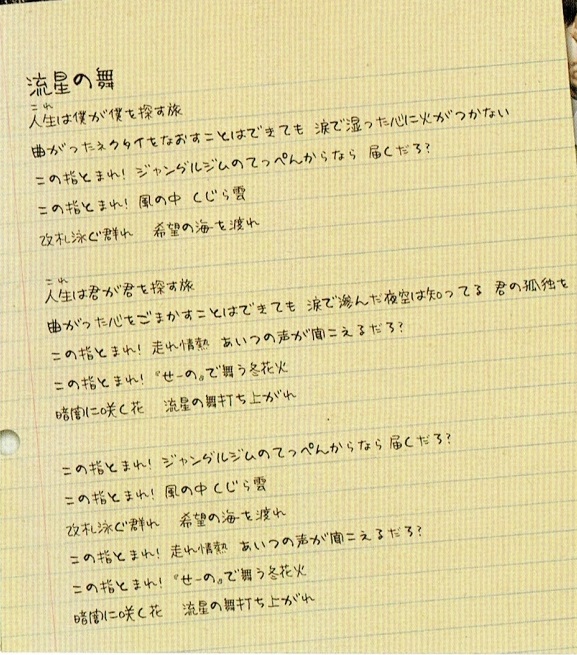 流星の舞
これ
人生は僕が僕を探す旅
曲がったネクタイをなおすことはできても 涙で湿った心に火がつかない
この指とまれ! ジャングルジムのてっぺんからなら 届くだろ?
この指とまれ! 風の中 くじら雲
改札泳ぐ群れ 希望の海を渡れ
これ
人生は君が君を探す旅
曲がった心をごまかすことはできても 涙で滲んだ夜空は知ってる 君の孤独を
この指とまれ! 走れ情熱 あいつの声が聞こえるだろ?
この指とまれ!『せーの』で舞う冬花火
暗闇に咲く花 流星の舞打ち上がれ
この指とまれ! ジャングルジムのてっぺんからなら 届くだろ?
この指とまれ! 風の中 くじら雲
改札泳ぐ群れ 希望の海を渡れ
この指とまれ! 走れ情熱 あいつの声が聞こえるだろ?
この指とまれ!『せーの』で舞う冬花火
暗闇に咲く花 流星の舞打ち上がれ